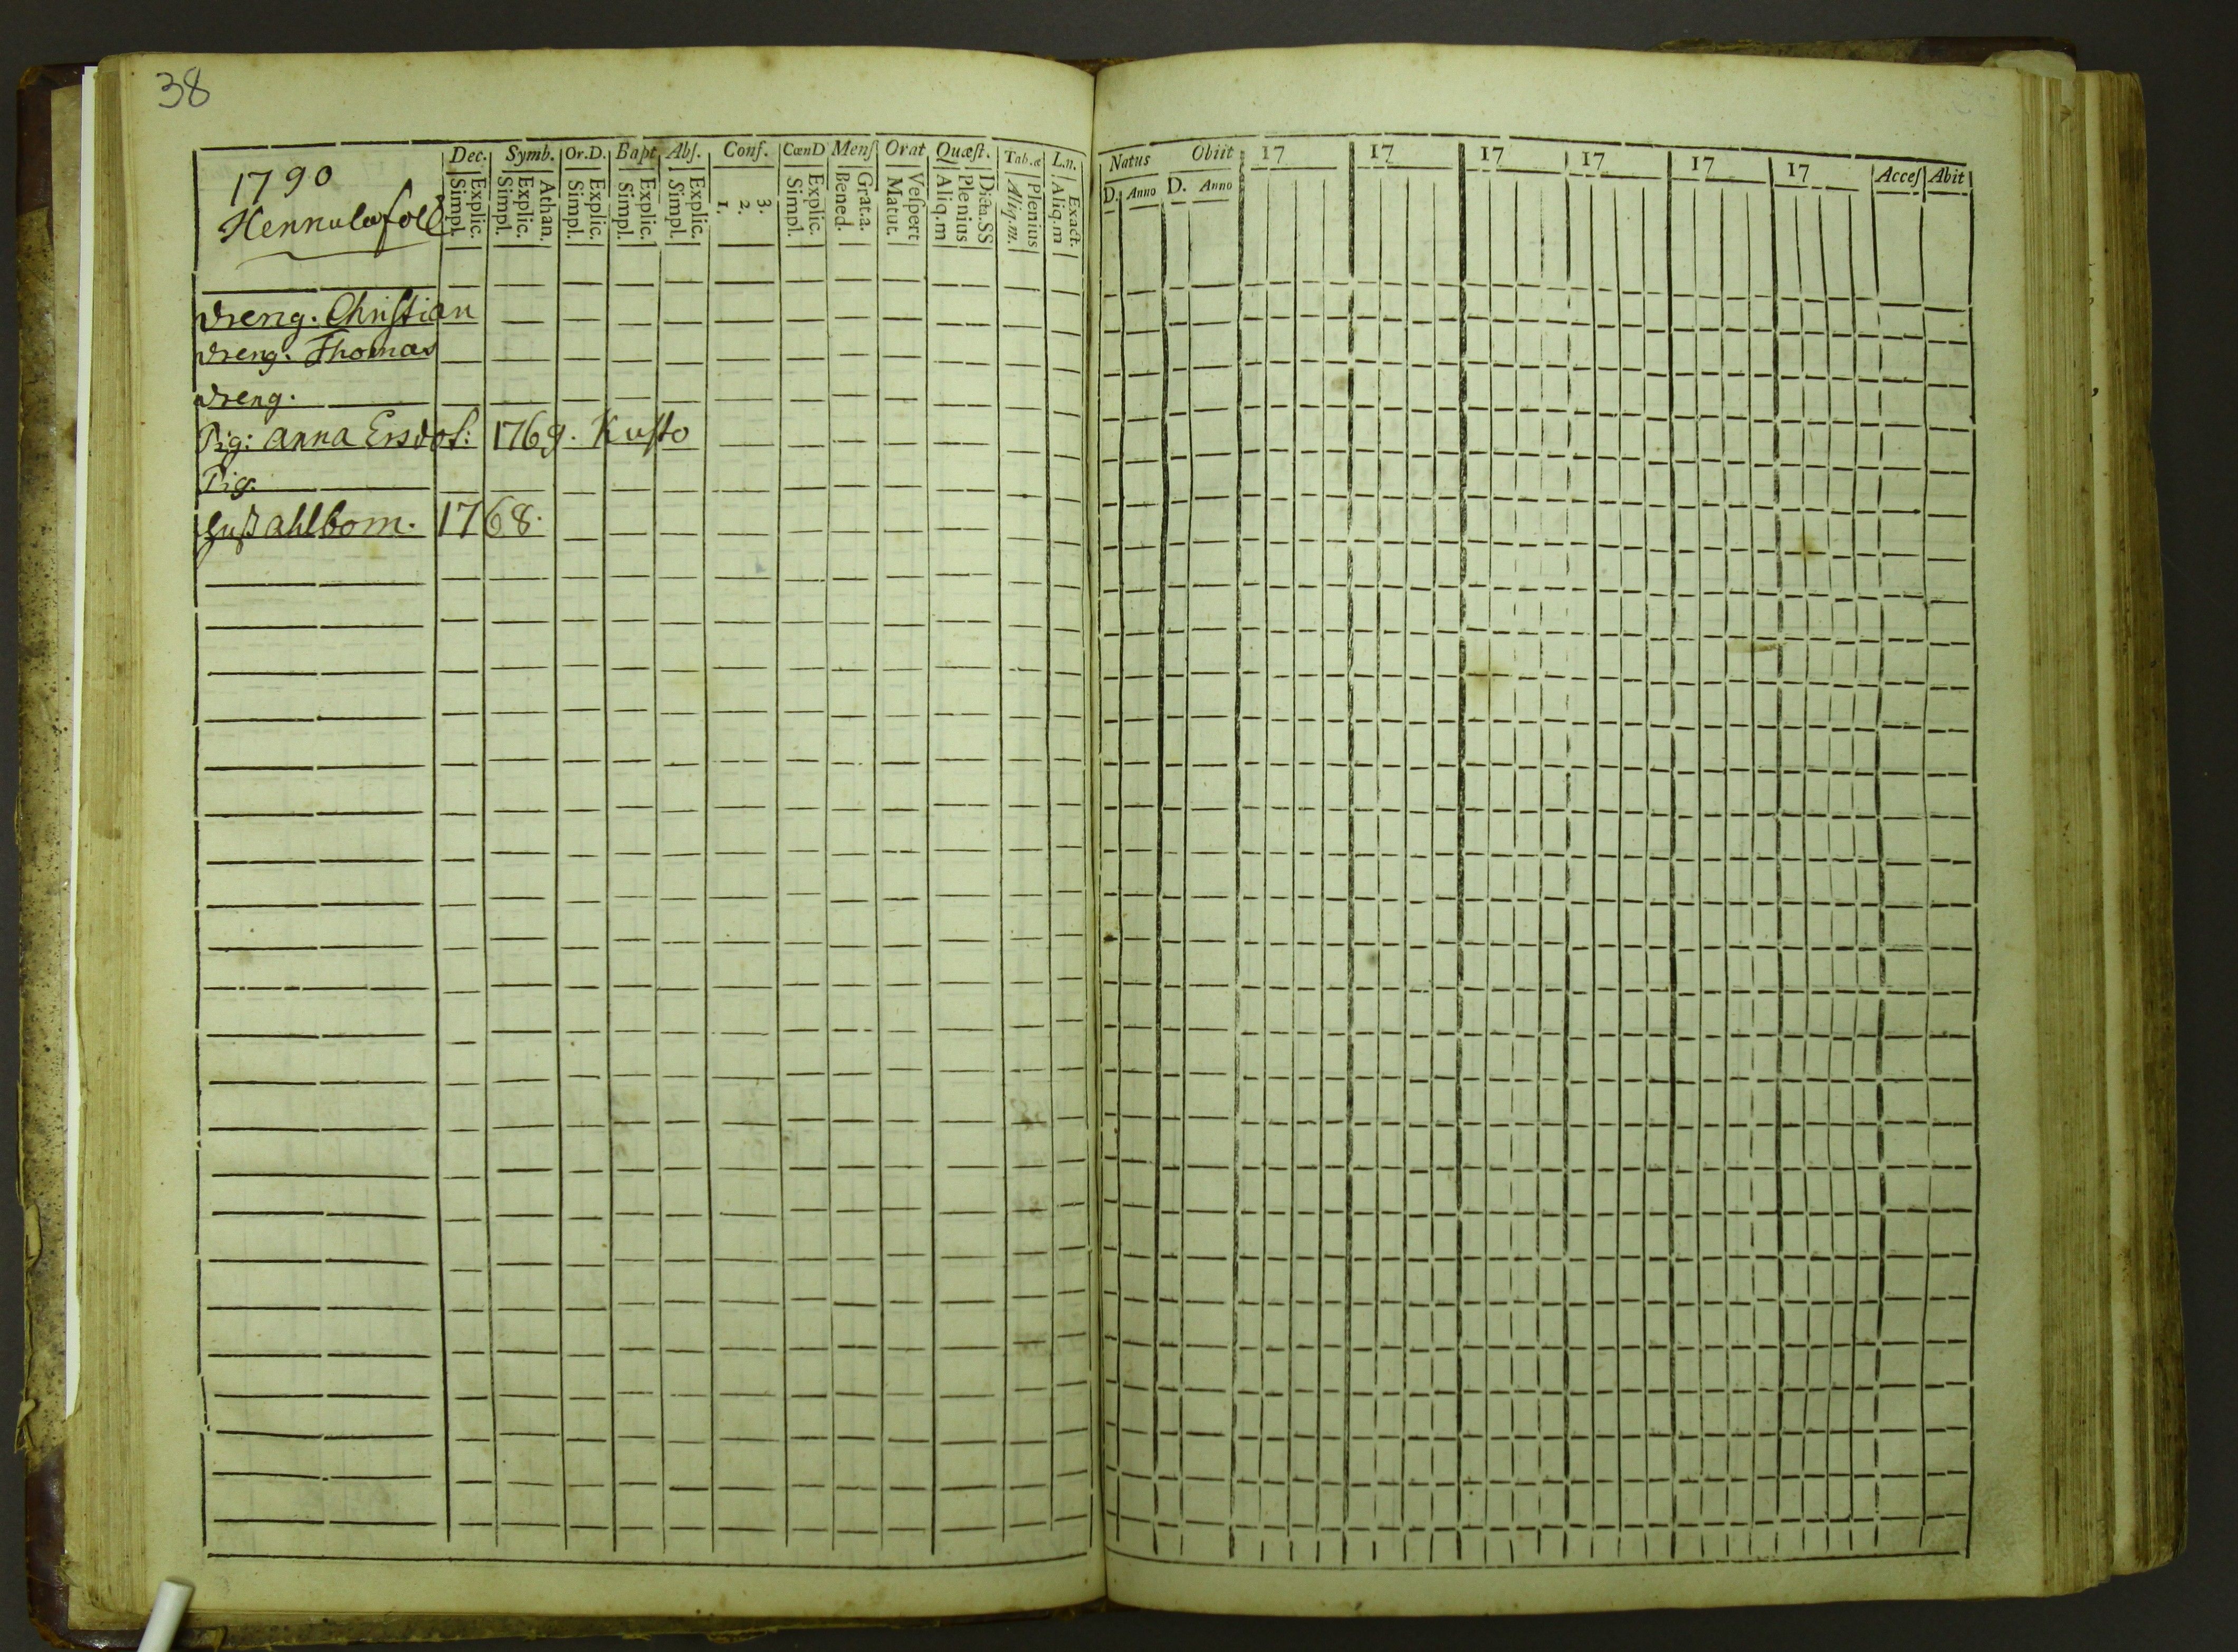 38
1790
Hennulafolk
Dec. Symb. Or.D. Bapt Abſ. Conf. CœnD Menſ Orat Quæſt. Tab.æ L.n.
Simpl. Explic. Simpl. Explic. Athan. Simpl. Explic. Simpl. Explic. Simpl. Explic. 1. 2. 3. Simpl. Explic. Bened. Grat.a. Matut. Veſpert Aliq.m Plenius Dicta.SS Aliq.m. Plenius Aliq.m Exact.
Dreng. Chriſtian
Dreng. Thomas
Dreng.
Pig: Anna Ersdot: 1769. Kuſto
Pig.
Ahlbom. 1768.
Natus Obiit 17 17 17 17 17 17 Acceſ Abit
D. Anno D. Anno